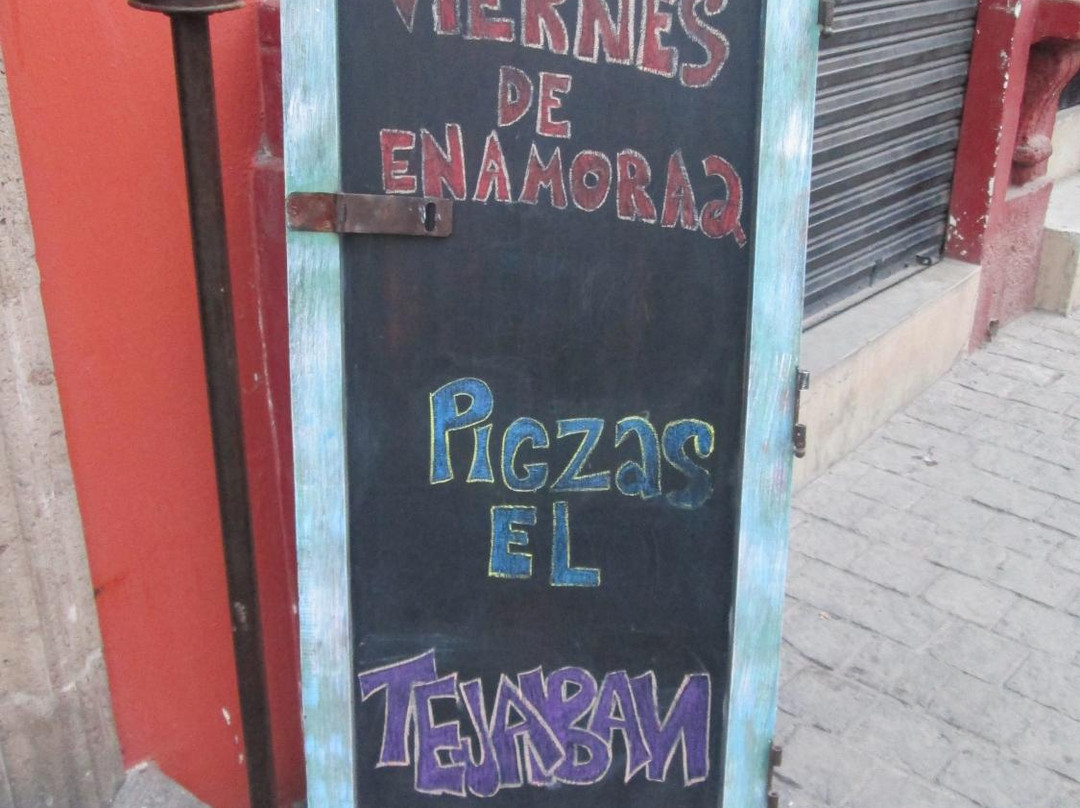 VIERNES
DE
ENAMORA2
PIGZAS
EL
TEJABAN